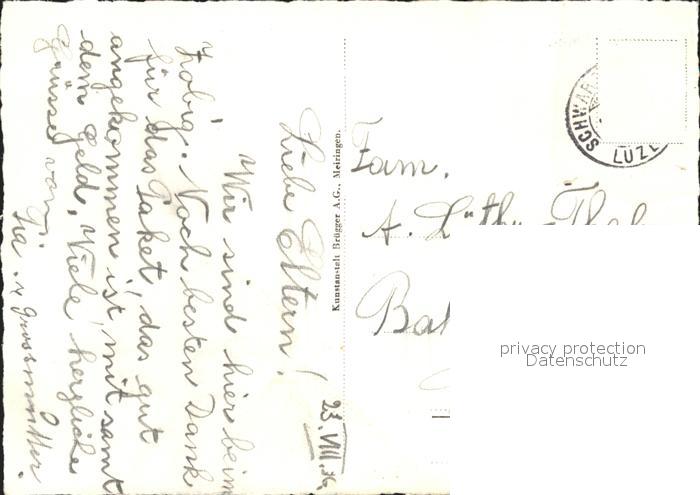 23. VIII. 36
Liebe Eltern!
Wir sind hier beim
Zobig. Noch besten Dank
für das Paket, das gut
angekommen ist, mit samt
dem Geld. Viele herzliche
Grüsse von
Ida. & Grossmutter.
Kunstanstalt Brügger A.G., Meiringen.
Fam.
A. Lüthy-
SCHWAR
LUZ
privacy protection
Datenschutz